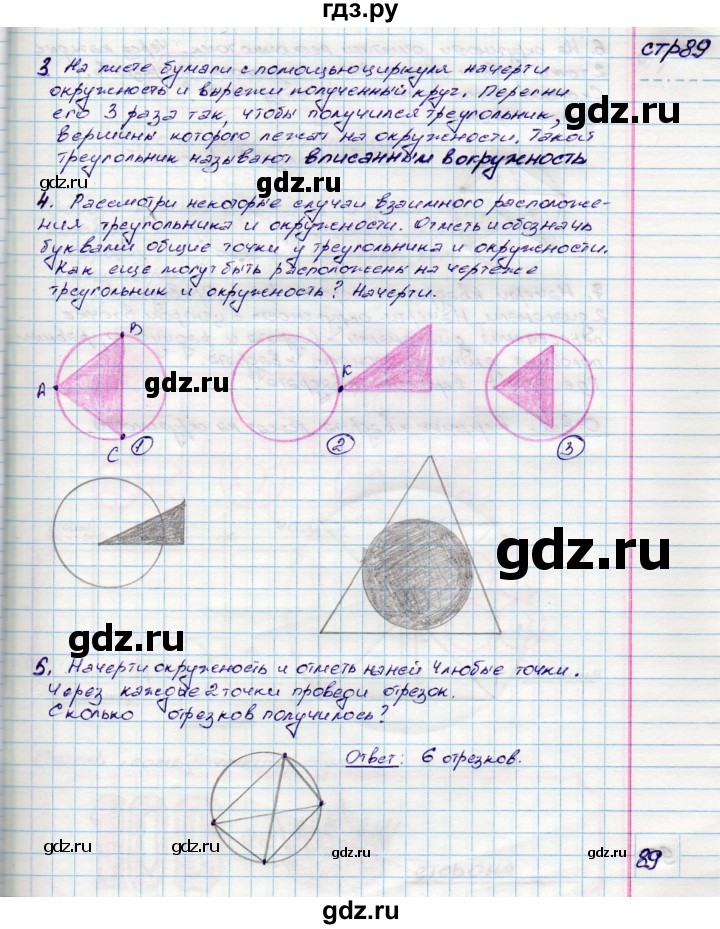 гдз.ру
стр89
3 На листе бумаги с помощью циркуля начерти
окружность и вырежи полученный круг. Перегни
его 3 раза так, чтобы получился треугольник,
вершины которого лежат на окружности. Такой
треугольник называют вписанным в окружность
gdz.ru
gdz.ru
gdz.ru
4. Рассмотри некоторые случаи взаимного расположе-
ния треугольника и окружности. Отметь и обозначь
буквами общие точки у треугольника и окружности.
Как еще могут быть расположены на чертеже
треугольник и окружность? Начерти.
B
A
K
C
1
2
3
gdz.ru
gdz.ru
gdz.ru
gdz.ru
5. Начерти окружность и отметь на ней 4 любые точки.
Через каждые 2 точки проведи отрезок.
Сколько отрезков получилось?
Ответ: 6 отрезков.
gdz.ru
gdz.ru
gdz.ru
gdz.ru
89
gdz.ru